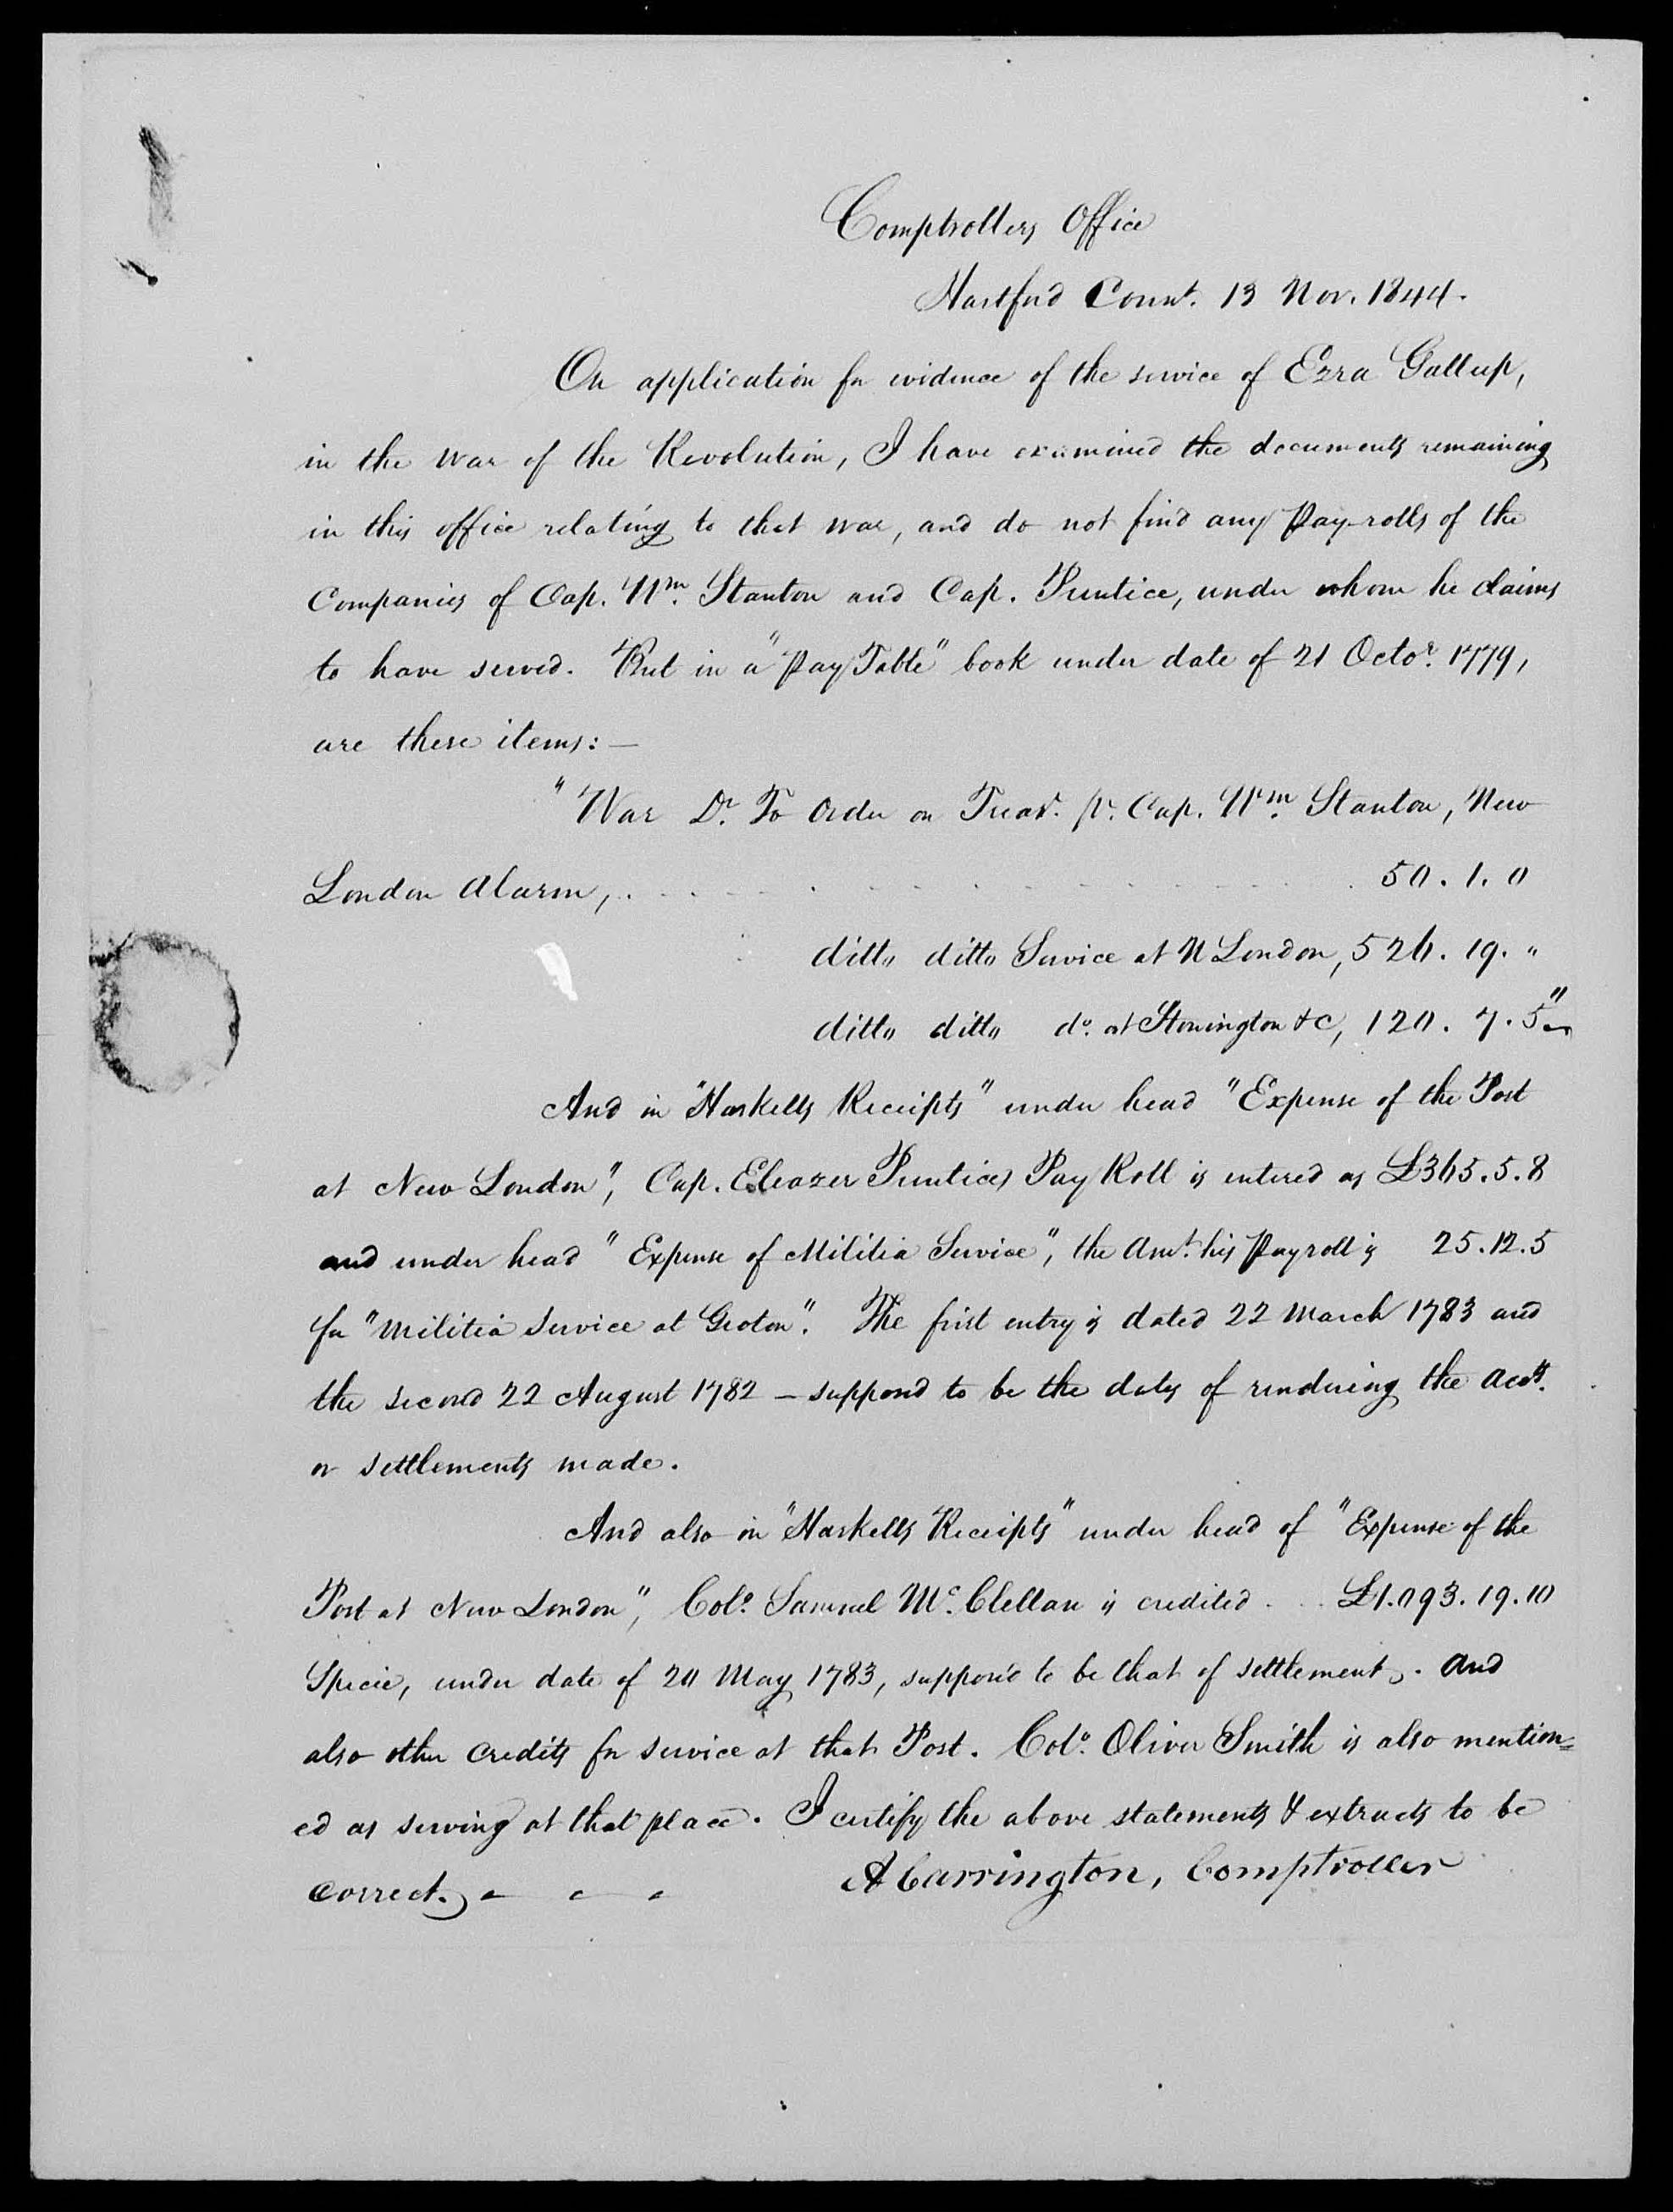 Comptrollers Office
Hartford Connt. 13 Nov. 1844.
On application for evidence of the service of Ezra Gallup,
in the War of the Revolution, I have examined the documents remaining
in this office relating to that war, and do not find any Pay-rolls of the
Companies of Cap. Wm. Stanton and Cap. Prentice, under whom he claims
to have served. But in a "Pay Table" book under date of 21 Octor. 1779,
are these items: —
"War Dr. To Order on Treasr. pr. Cap. Wm. Stanton, New
London Alarm, . . . . . . . . . . . 50. 1. 0
ditto ditto Service at N London, 526. 19. "
ditto ditto do. at Stonington &c, 120. 7. 5"
And in "Haskells Receipts" under head "Expense of the Post
at New London", Cap. Eleazer Prentices Pay Roll is entered as £365.5.8
and under head "Expense of Militia Service", the Amt. his Payroll is 25.12.5
for "Militia Service at Groton". The first entry is dated 22 March 1783 and
the second 22 August 1782 — supposed to be the dates of rendering the accts.
or settlements made.
And also in "Haskells Receipts" under head of "Expense of the
Post at New London", Colo. Samuel Mc.Clellan is credited . . £1.093.19.10
Specie, under date of 20 May 1783, suppos'd to be that of settlement. And
also other credits for service at that Post. Colo. Oliver Smith is also mention=
ed as serving at that place. I certify the above statements & extracts to be
correct. - - - A Carrington, Comptroller